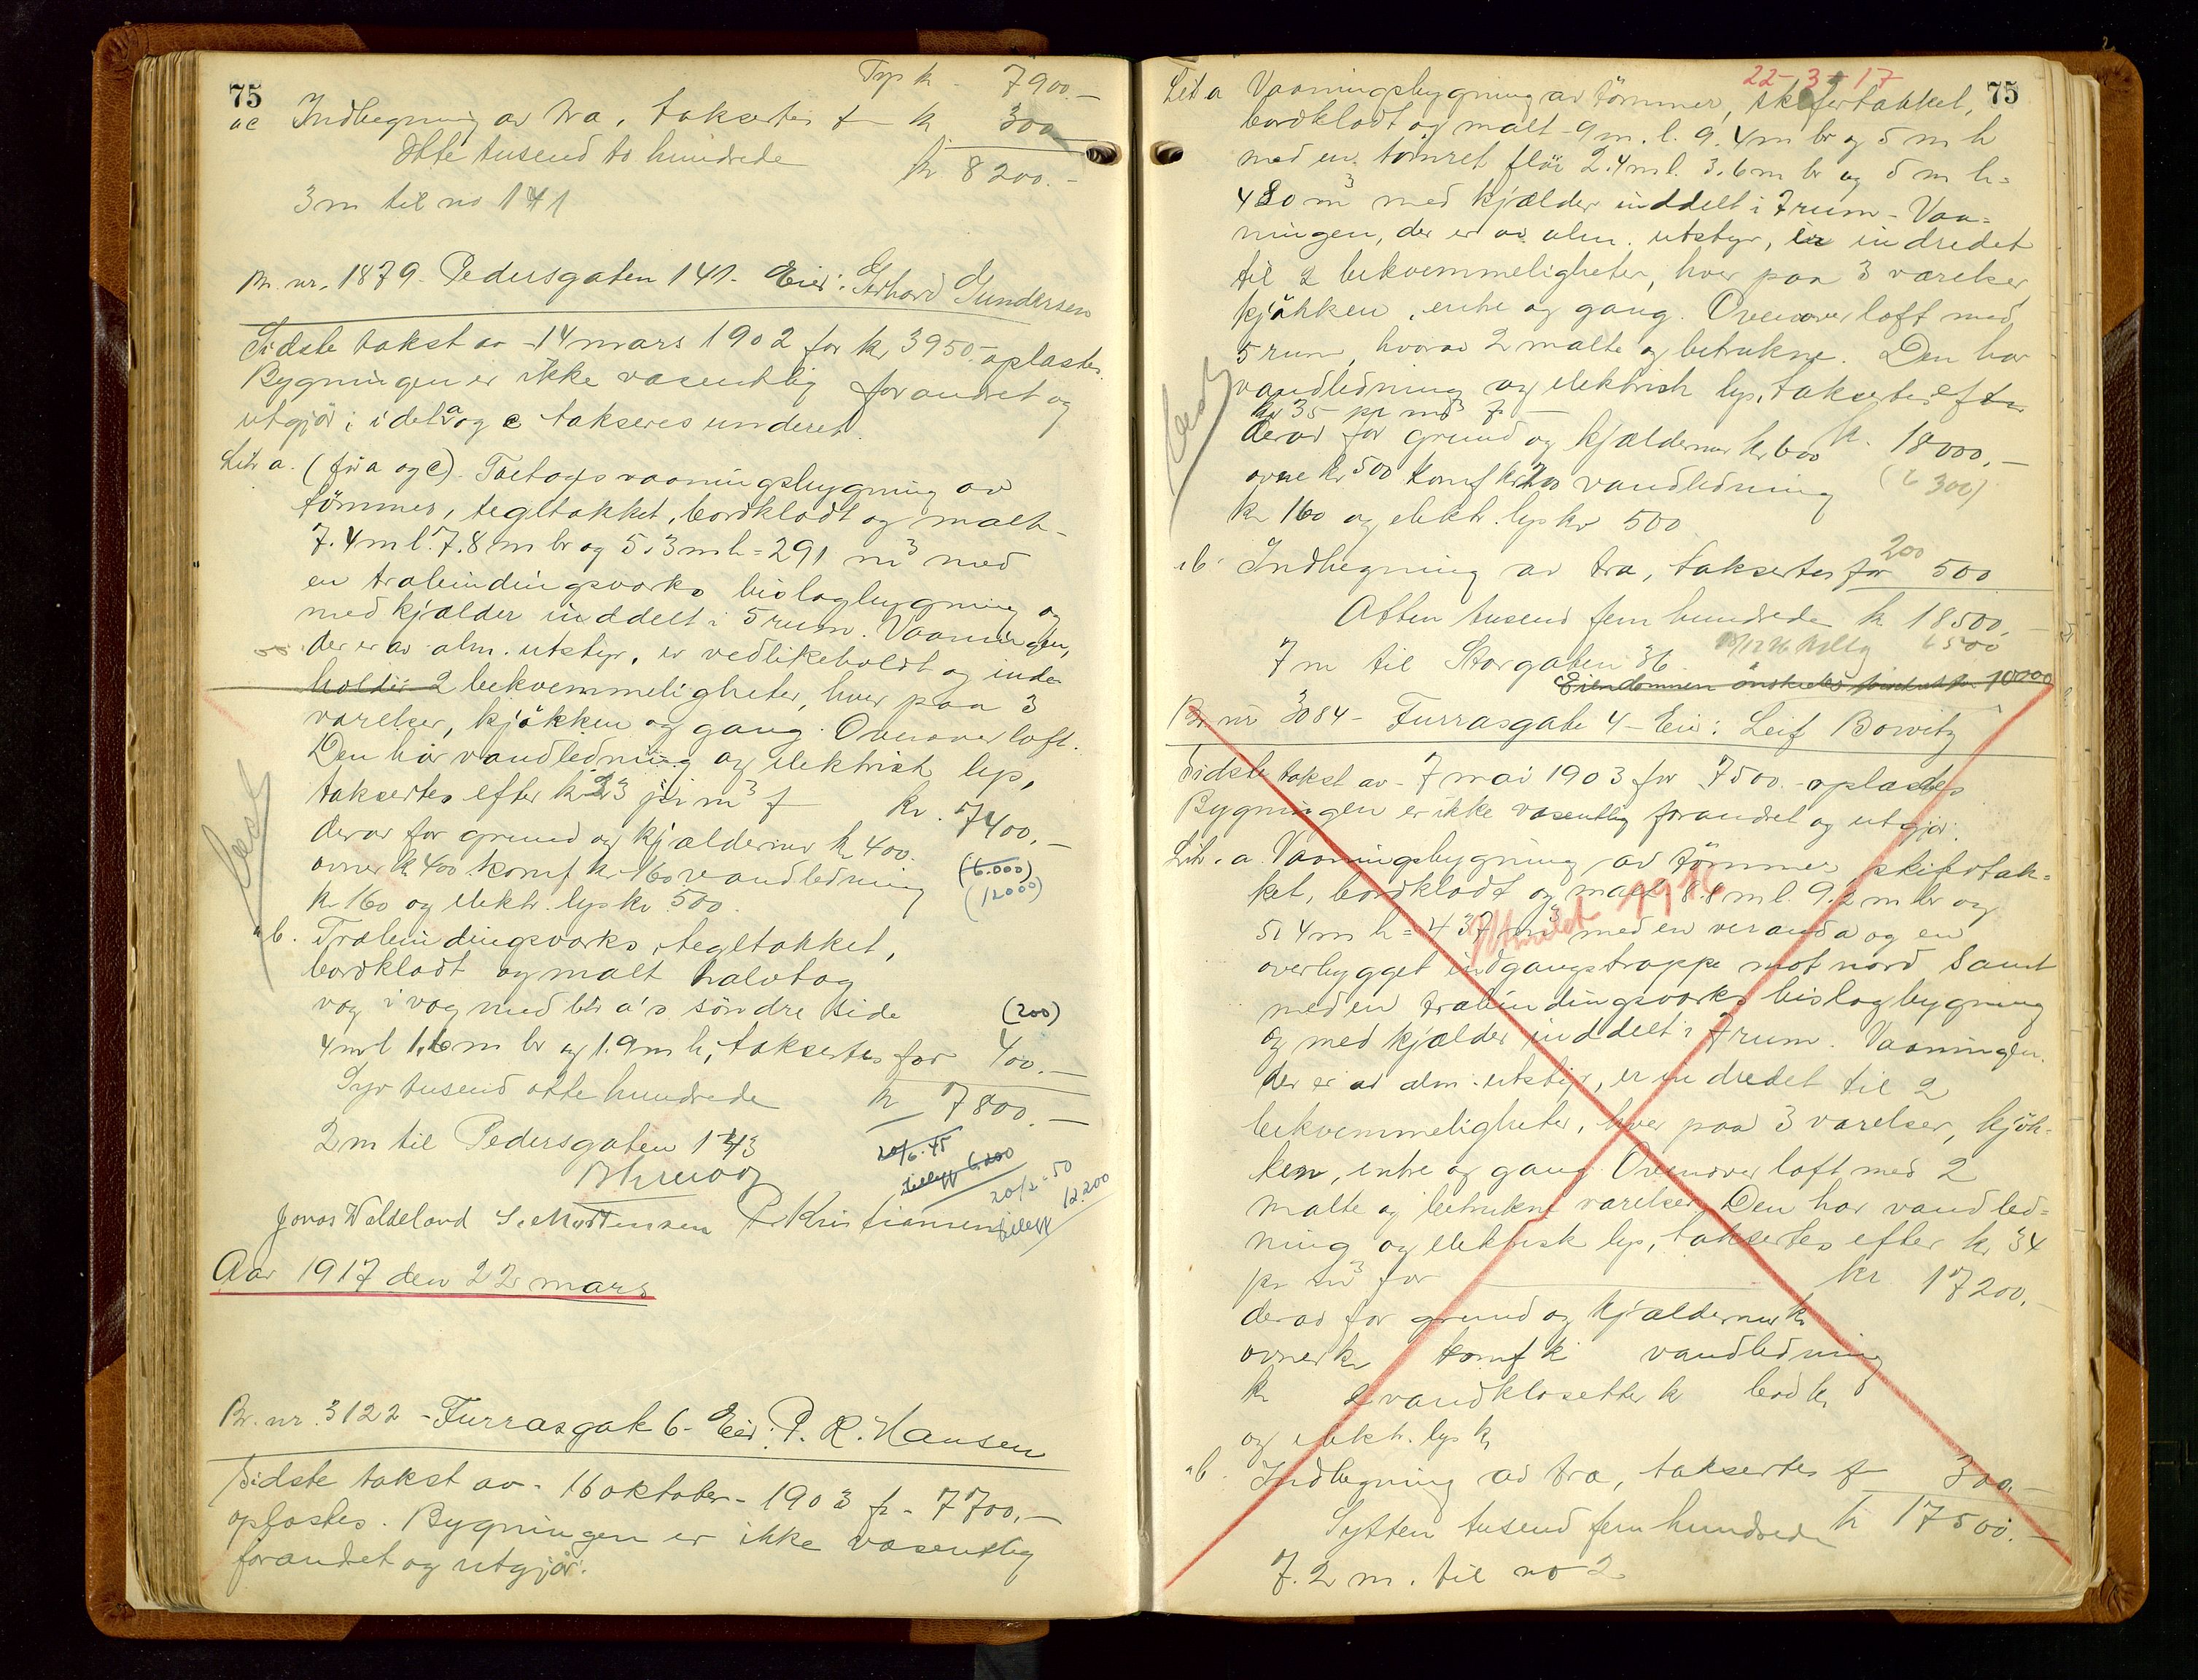 75
Trp k - 7900.-
a c Indhegning av tra, takseres f- k 300
Otte tusend to hundrede kr 8200.-
3 m til no 141
Br. nr. 1879 - Pedersgaten 141 - Eier: Gerhard Gundersen
Sidste takst av - 14 mars 1902 for kr 3950.- oplæstes.
Bygningen er ikke væsentlig forandret og
utgjör; i det a og c takseres under et.
Litr a. (för a og c). Toetages vaaningsbygning av
tömmer, tegltækket, bordklædt og malt -
7.4 m l. 7.8 m br og 5.3 m h = 291 m³ med
en træbindingsværks bislagbygning og
med kjælder inddelt i 5 rum. Vaaningen,
der er av alm. utstyr, er vedlikeholdt og inde-
holder 2 bekvemmeligheter, hver paa 3
værelser, kjökken og gang. Ovenover loft.
Den har vandledning og elektrisk lys,
takseres efter kr 23 pr m³ f- kr. 7400.-
derav for grund og kjældermur kr 400.
ovner kr 400 komf kr 160 vandledning (6.000)
kr 160 og elektr. lys kr 500. (12000)
" b. Træbindingsværks, tegltækket,
bordklædt og malt halvtag
væg i væg med litr a's söndre side (200)
4 m l 1.6 m br og 1.9 m h, takseres for 400.-
Syv tusend otte hundrede kr 7800.-
2 m til Pedersgaten 143
20/6-45
tillegg 6.200
20/2-50
tillegg 12.200
Jonas Waldeland S. Mortensen P Kristiansen
Aar 1917 den 22 mars
Br. nr. 3122 - Furrasgate 6 - Eier: P. R. Hansen
Sidste takst av - 16 oktober - 1903 fr - 7700.-
oplæstes. Bygningen er ikke væsentlig
forandret og utgjör:
22-3-17
75
Lit a Vaaningsbygning av tömmer, skifertækket,
bordklædt og malt - 9 m. l. 9.4 m br og 5 m h
med en tömret flöi 2.4 m l. 3.6 m br og 5 m h =
480 m³ med kjælder inddelt i 7 rum - Vaa=
ningen, der er av alm. utstyr, er indredet
til 2 bekvemmeligheter, hver paa 3 værelser,
kjökken, entre og gang. Ovenover loft med
5 rum, hvorav 2 malte og betrukne. Den har
vandledning og elektrisk lys, takseres efter
kr 35 pr m³ f- k. 18000.-
derav for grund og kjældermur kr 600
ovne kr 500 komf kr 200 vandledning (6300)
kr 160 og elektr. lys kr 500
" b. Indhegning av tra, takseres for 500
200
Atten tusend fem hundrede kr 18500.-
6500
7 m til Storgaten 36.
Eiendommen önskedes 10000
Br nr 3084 - Furrasgate 4 - Eier: Leif Bowitz
Sidste takst av - 7 mai 1903 for 7500.- oplæstes
Bygningen er ikke væsentlig forandret og utgjör:
Litr. a. Vaaningsbygning av tömmer, skifertæk=
ket, bordklædt og malt 8.8 m l. 9.2 m br og
5.4 m h = 437 m³ med en veranda og en
overbygget indgangstrappe mot nord samt
med en træbindingsværks bislagbygning
og med kjælder inddelt i 7 rum. Vaaningen,
der er av alm. utstyr, er indredet til 2
bekvemmeligheter, hver paa 3 værelser, kjök=
ken, entre og gang. Ovenover loft med 2
malte og betrukne værelser. Den har vandled=
ning og elektrisk lys, takseres efter kr 34
pr m³ for kr 17200.-
derav for grund og kjældermur kr
ovner kr komf k vandledning
kr 2 vandklosetter k bad kr
og elektr. lys kr
" b. Indhegning av tra, takseres f- 300.-
Sytten tusend fem hundrede kr 17500.-
7.2 m. til no 2.